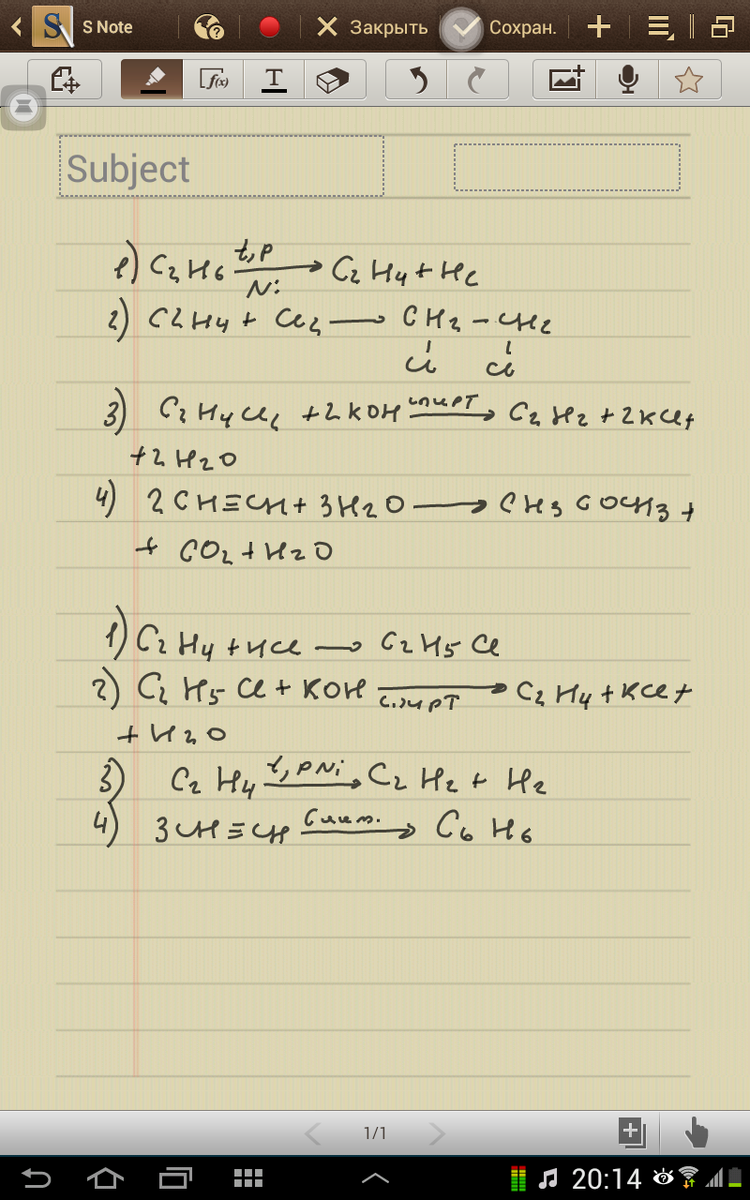 S Note Закрыть Сохран.
f(x) T
Subject
1) C2H6 t,p Ni → C2H4 + H2
2) C2H4 + Cl2 — CH2 – CH2
Cl Cl
3) C2H4Cl2 + 2KOH спирт → C2H2 + 2KCl +
+ 2H2O
4) 2CH≡CH + 3H2O → CH3COCH3 +
+ CO2 + H2O
1) C2H4 + HCl → C2H5Cl
2) C2H5Cl + KOH спирт → C2H4 + KCl +
+ H2O
3) C2H4 t, p Ni → C2H2 + H2
4) 3CH≡CH → C6H6
1/1
20:14